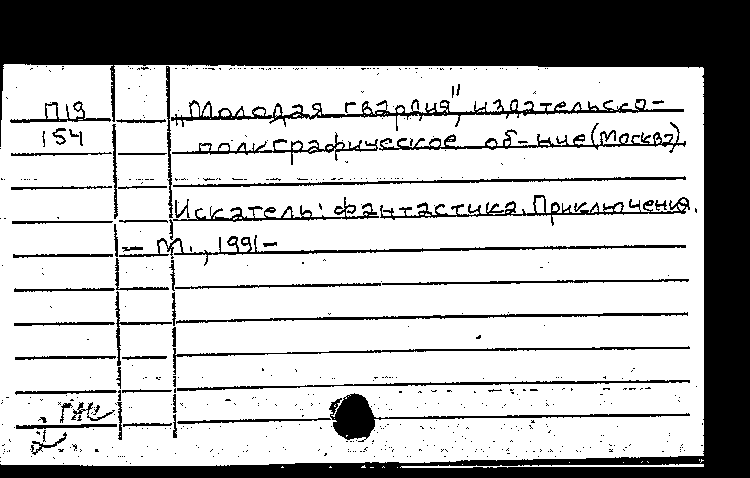 П19
154
„Молодая гвардия", издательско-
полиграфическое об-ние (Москва).
Искатель: фантастика. Приключения.
— М., 1991-
2